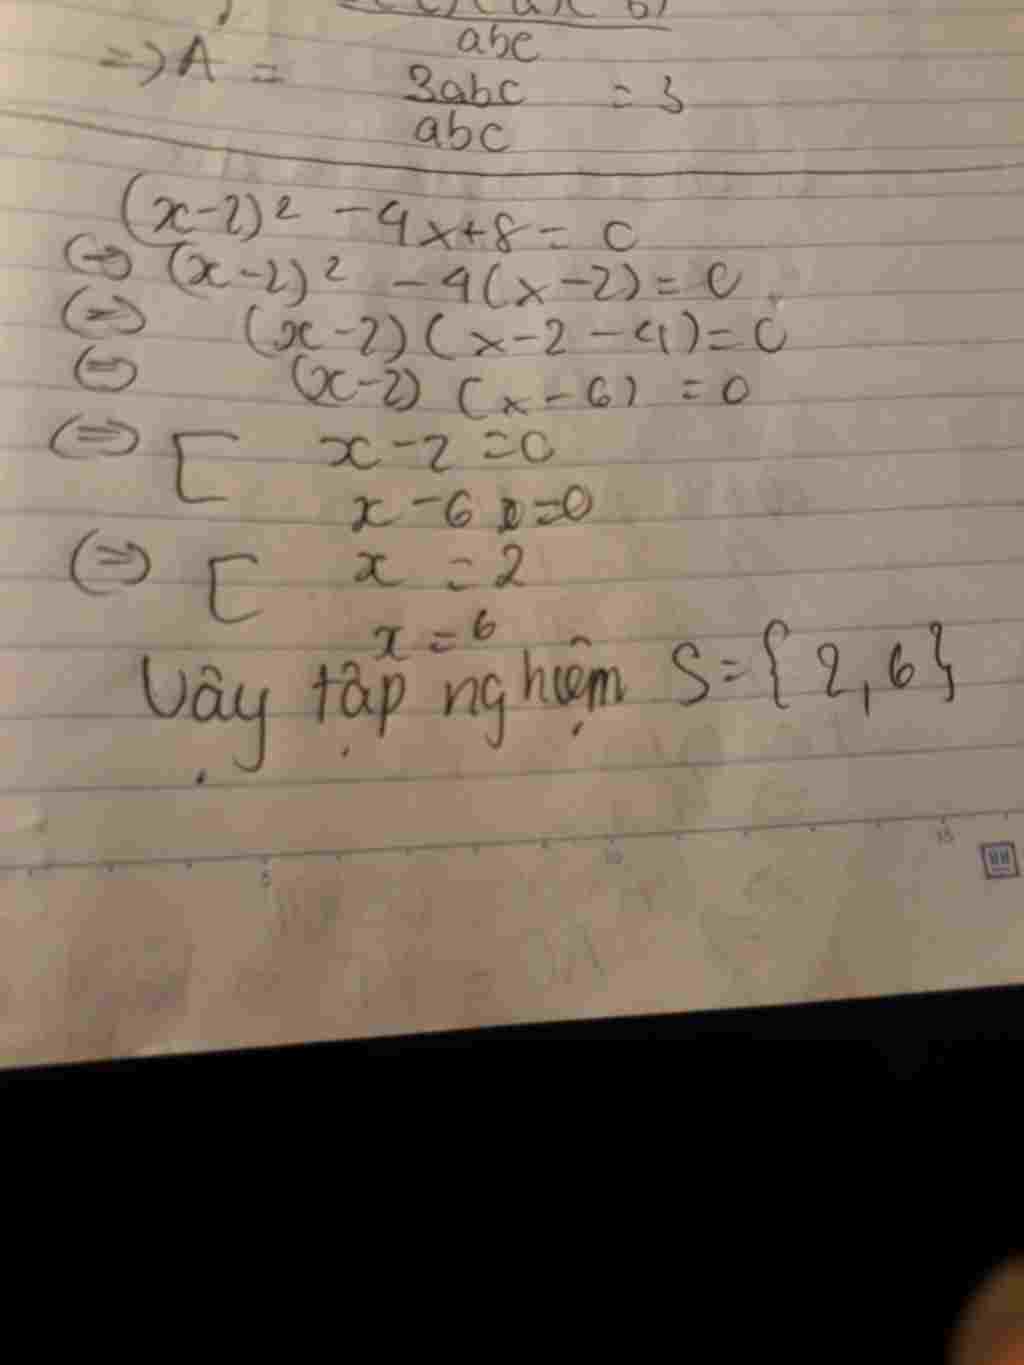 abc
=> A = 3abc = 3
abc
(x-2)² - 4x+8 = 0
(=) (x-2)² - 4(x-2) = 0
(=) (x-2)(x-2-4) = 0
(=) (x-2) (x-6) = 0
(=>) [ x-2 = 0
x-6 = 0
(=>) [ x = 2
x = 6
Vậy tập nghiệm S = {2, 6}
5 10 15